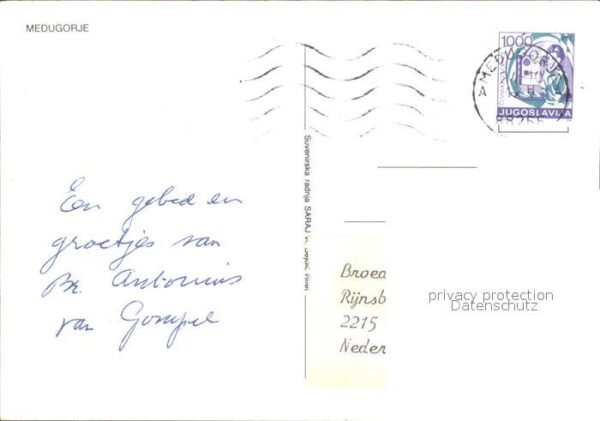 MEDUGORJE
1000
JUGOSLAVIJA
A MEDUGORJE
88266
Suvenirska radnja SARAJ
Een gebed en
groetjes van
Br. Antonius
van Gompel
Broed
Rijnsb
2215
Neder
privacy protection
Datenschutz